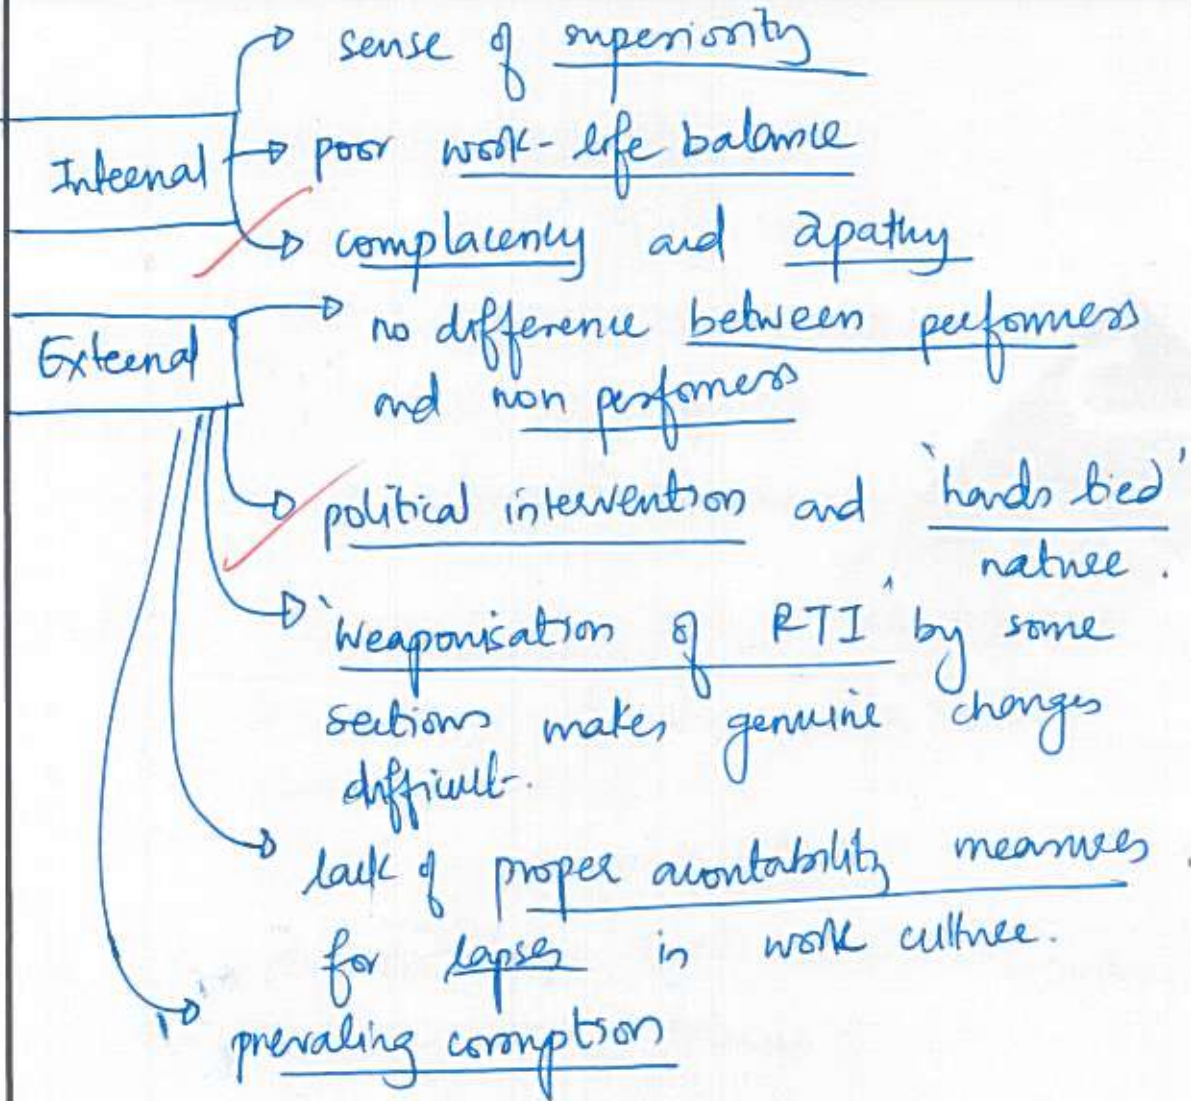 Internal
sense of superiority
poor work-life balance
complacency and apathy
External
no difference between performers
and non performers
political intervention and 'hands tied'
nature.
'Weaponisation of RTI' by some
sections makes genuine changes
difficult.
lack of proper accountability measures
for lapses in work culture.
prevailing corruption